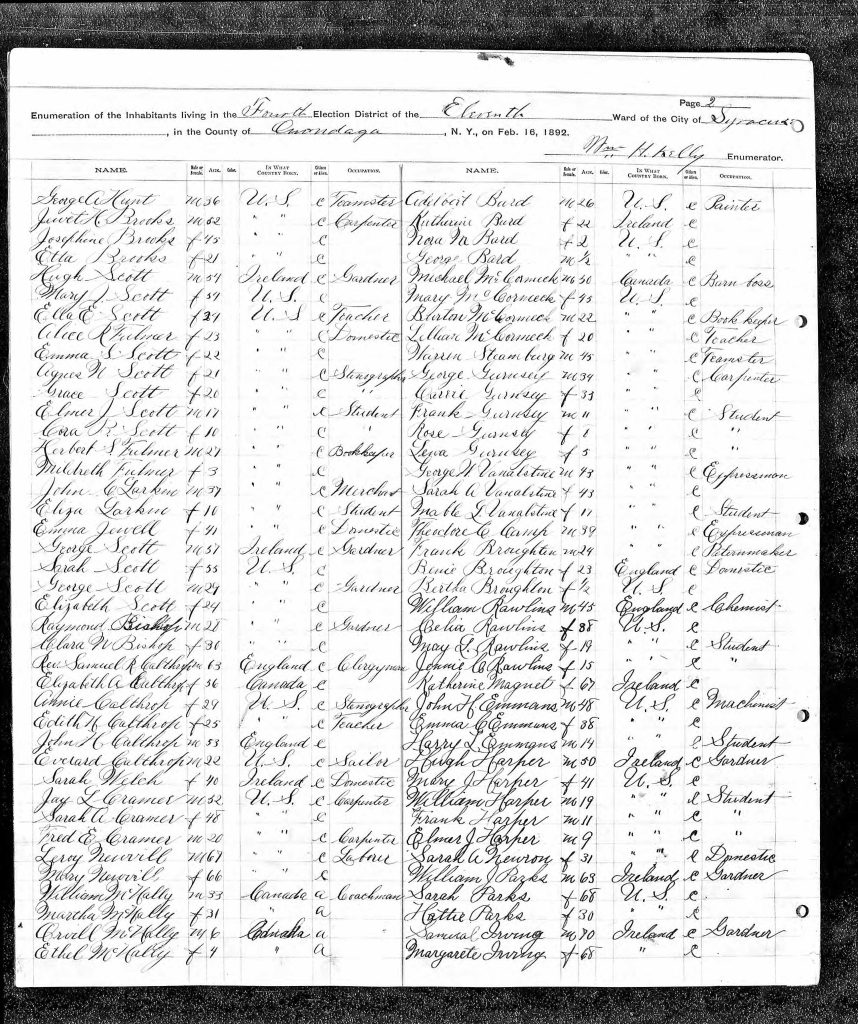 Page 2
Enumeration of the Inhabitants living in the Fourth Election District of the Eleventh Ward of the City of Syracuse
, in the County of Onondaga, N. Y., on Feb. 16, 1892.
Wm H. Kelly Enumerator.
NAME. Male or female. AGE. Color. IN WHAT COUNTRY BORN. Citizen or alien. OCCUPATION. NAME. Male or female. AGE. Color. IN WHAT COUNTRY BORN. Citizen or alien. OCCUPATION.
George A Hunt m 56 U. S. c Teamster
Brooks m 52 " " c Carpenter
Josephine Brooks f 45 " " c
Etta Brooks f 21 " " c
Hugh Scott m 54 Ireland c Gardner
Mary J. Scott f 54 U. S. c
Ella E Scott f 24 U. S c Teacher
Alice R Fulmer f 23 " " c Domestic
Emma S Scott f 22 " " c
Agnes N Scott f 21 " " c Stenographer
Grace Scott f 20 " " c "
Elmer J Scott m 17 " " c Student
Cora R. Scott f 10 " " c "
Herbert S Fulmer m 27 " " c Bookkeeper
Mildreth Fulmer f 3 " " c
John C Larkin m 37 " " c Merchant
Eliza Larkin f 10 " " c Student
Emma Jewell f 41 " " c Domestic
George Scott m 57 Ireland c Gardner
Sarah Scott f 55 U. S. c
George Scott m 29 " " c Gardner
Elizabeth Scott f 24 " " c
Raymond Bishop m 28 " " c Gardner
Clara N Bishop f 30 " " c
Rev Samuel R Calthrop m 63 England c Clergyman
Elizabeth A Calthrop f 56 Canada c
Annie Calthrop f 29 U. S c Stenographer
Edith H Calthrop f 25 " " c Teacher
John H Calthrop m 53 England c
Everard Calthrop m 22 U. S. c Sailor
Sarah Welch f 40 Ireland c Domestic
Jay L Cramer m 52 U. S. c Carpenter
Sarah A Cramer f 48 " " c
Fred E Cramer m 20 " " c Carpenter
Leroy m 67 " " c Laborer
Mary f 66 " " c
William McNally m 33 Canada a Coachman
Martha McNally f 31 " a
Orvill McNally m 6 Canada a
Ethel McNally f 4 " a
Adelbert Burd m 26 U. S. c Painter
Katherine Burd f 22 Ireland c
Nora M Bard f 2 U. S c
George Bard m ½ " " c
Michael McCormick m 50 Canada c Barn boss
Mary McCormick f 45 U. S. c
Burton McCormick m 22 " " c Book keeper
Lillian McCormeck f 20 " " c Teacher
Warren Steamburg m 45 " " c Teamster
George Gurnsey m 34 " " c Carpenter
Carrie Gurnsey f 33 " " c
Frank Gurnsey m 11 " " c Student
Rose Gurnsey f " " c "
Lena Gurnsey f 5 " " c
George W Vanalstine m 43 " " c Expressman
Sarah A Vanalstine f 43 " " c
Mable L Vanalstine f 11 " " c Student
Theodore C Camp m 39 " " c Expressman
Frank Broughton m 24 " " c Paternmaker
Broughton f 23 England c Domestic
Bertha Broughton f ½ U. S. c
William Rawlins m 45 England c Chemist
Celia Rawlins f 38 U. S. c
May L. Rawlins f 19 " " c Student
Jennie C Rawlins f 15 " " c "
Katherine Magnet f 67 Ireland c
John H Emmans m 48 U. S. c Machenist
Emma C Emmans f 38 " " c
Harry L Emmans m 14 " " c Student
Hugh Harper m 50 Ireland c Gardner
Mary J Harper f 41 U. S. c
William Harper m 19 " " c Student
Frank Harper m 11 " " c "
Elmer J Harper m 9 " " c "
Sarah A Newron f 31 " " c Domestic
William J Parks m 63 Ireland c Gardner
Sarah Parks f 68 U. S. c
Hattie Parks f 30 " " c
Samuel Irving m 70 Ireland c Gardner
Margarete Irving f 68 " c